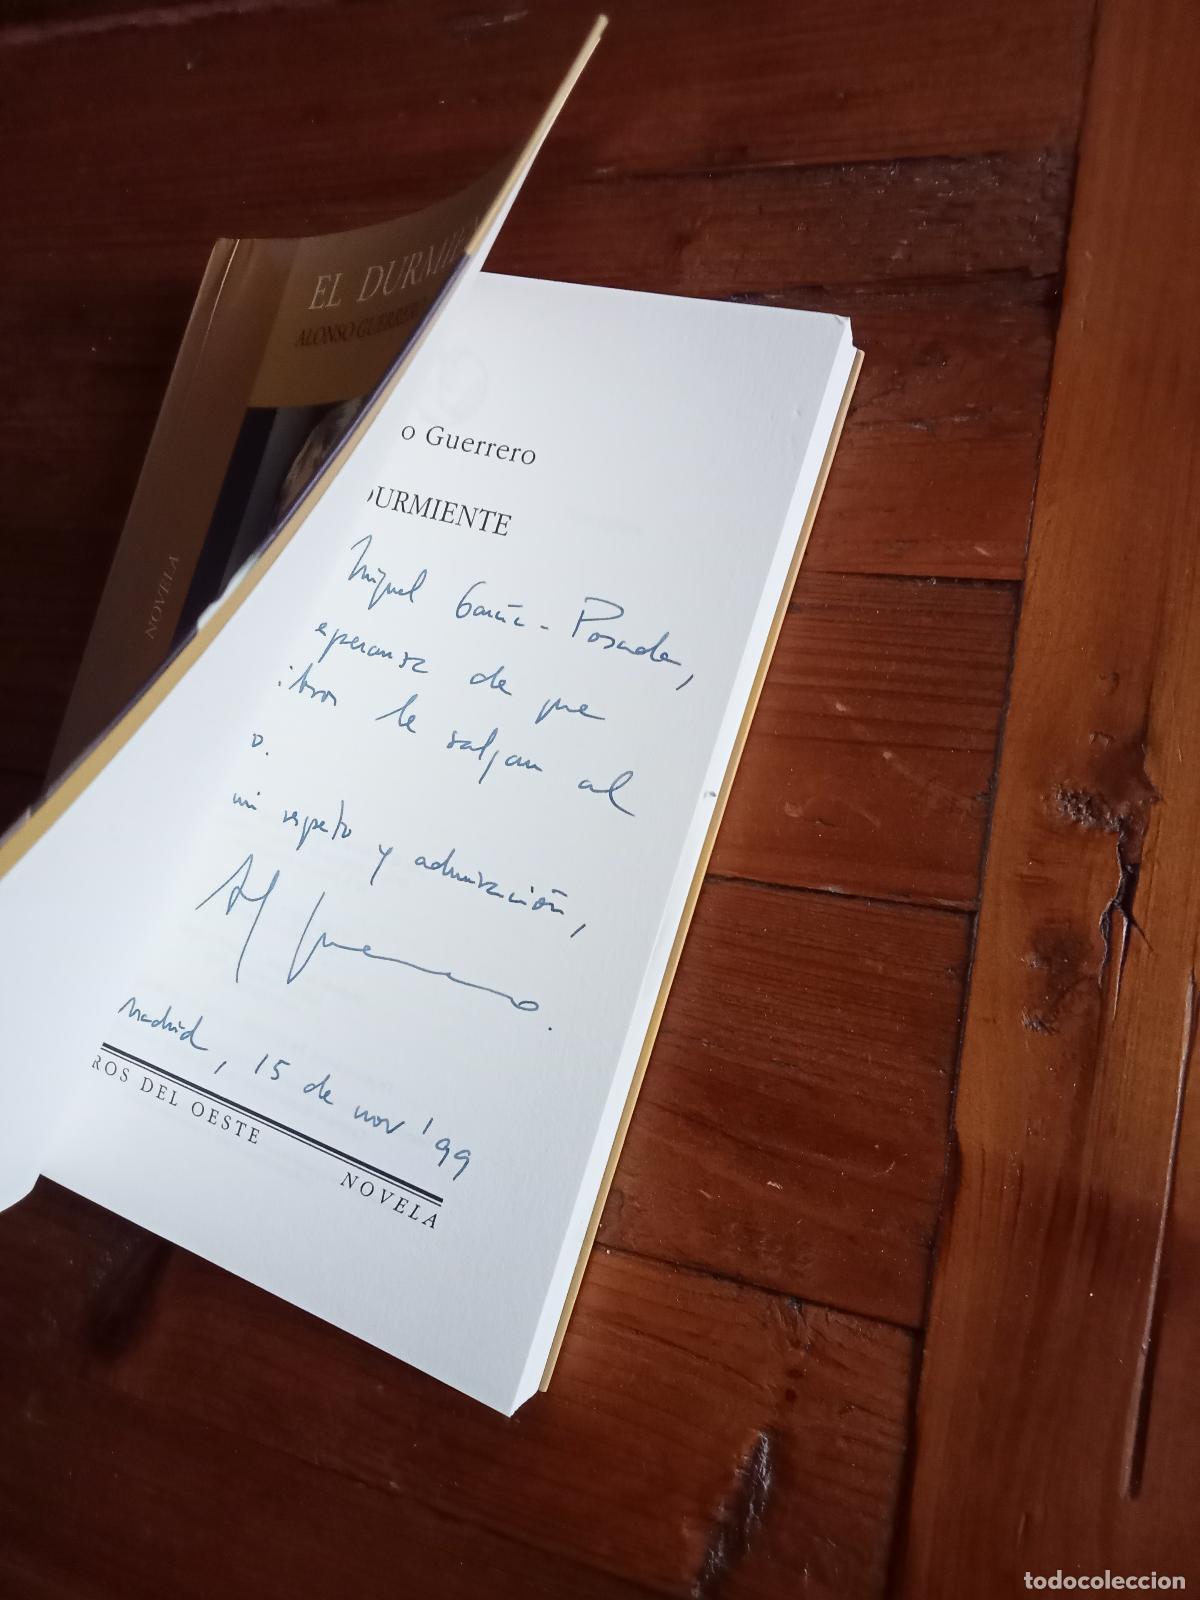 EL DURMI
ALONSO GUERRERO
NOVELA
o Guerrero
DURMIENTE
Miguel García-Posada,
esperanza de que
libros le salgan al
o.
mi respeto y admiración,
Al Guerrero.
Madrid, 15 de nov '99
ROS DEL OESTE
NOVELA
todocoleccion